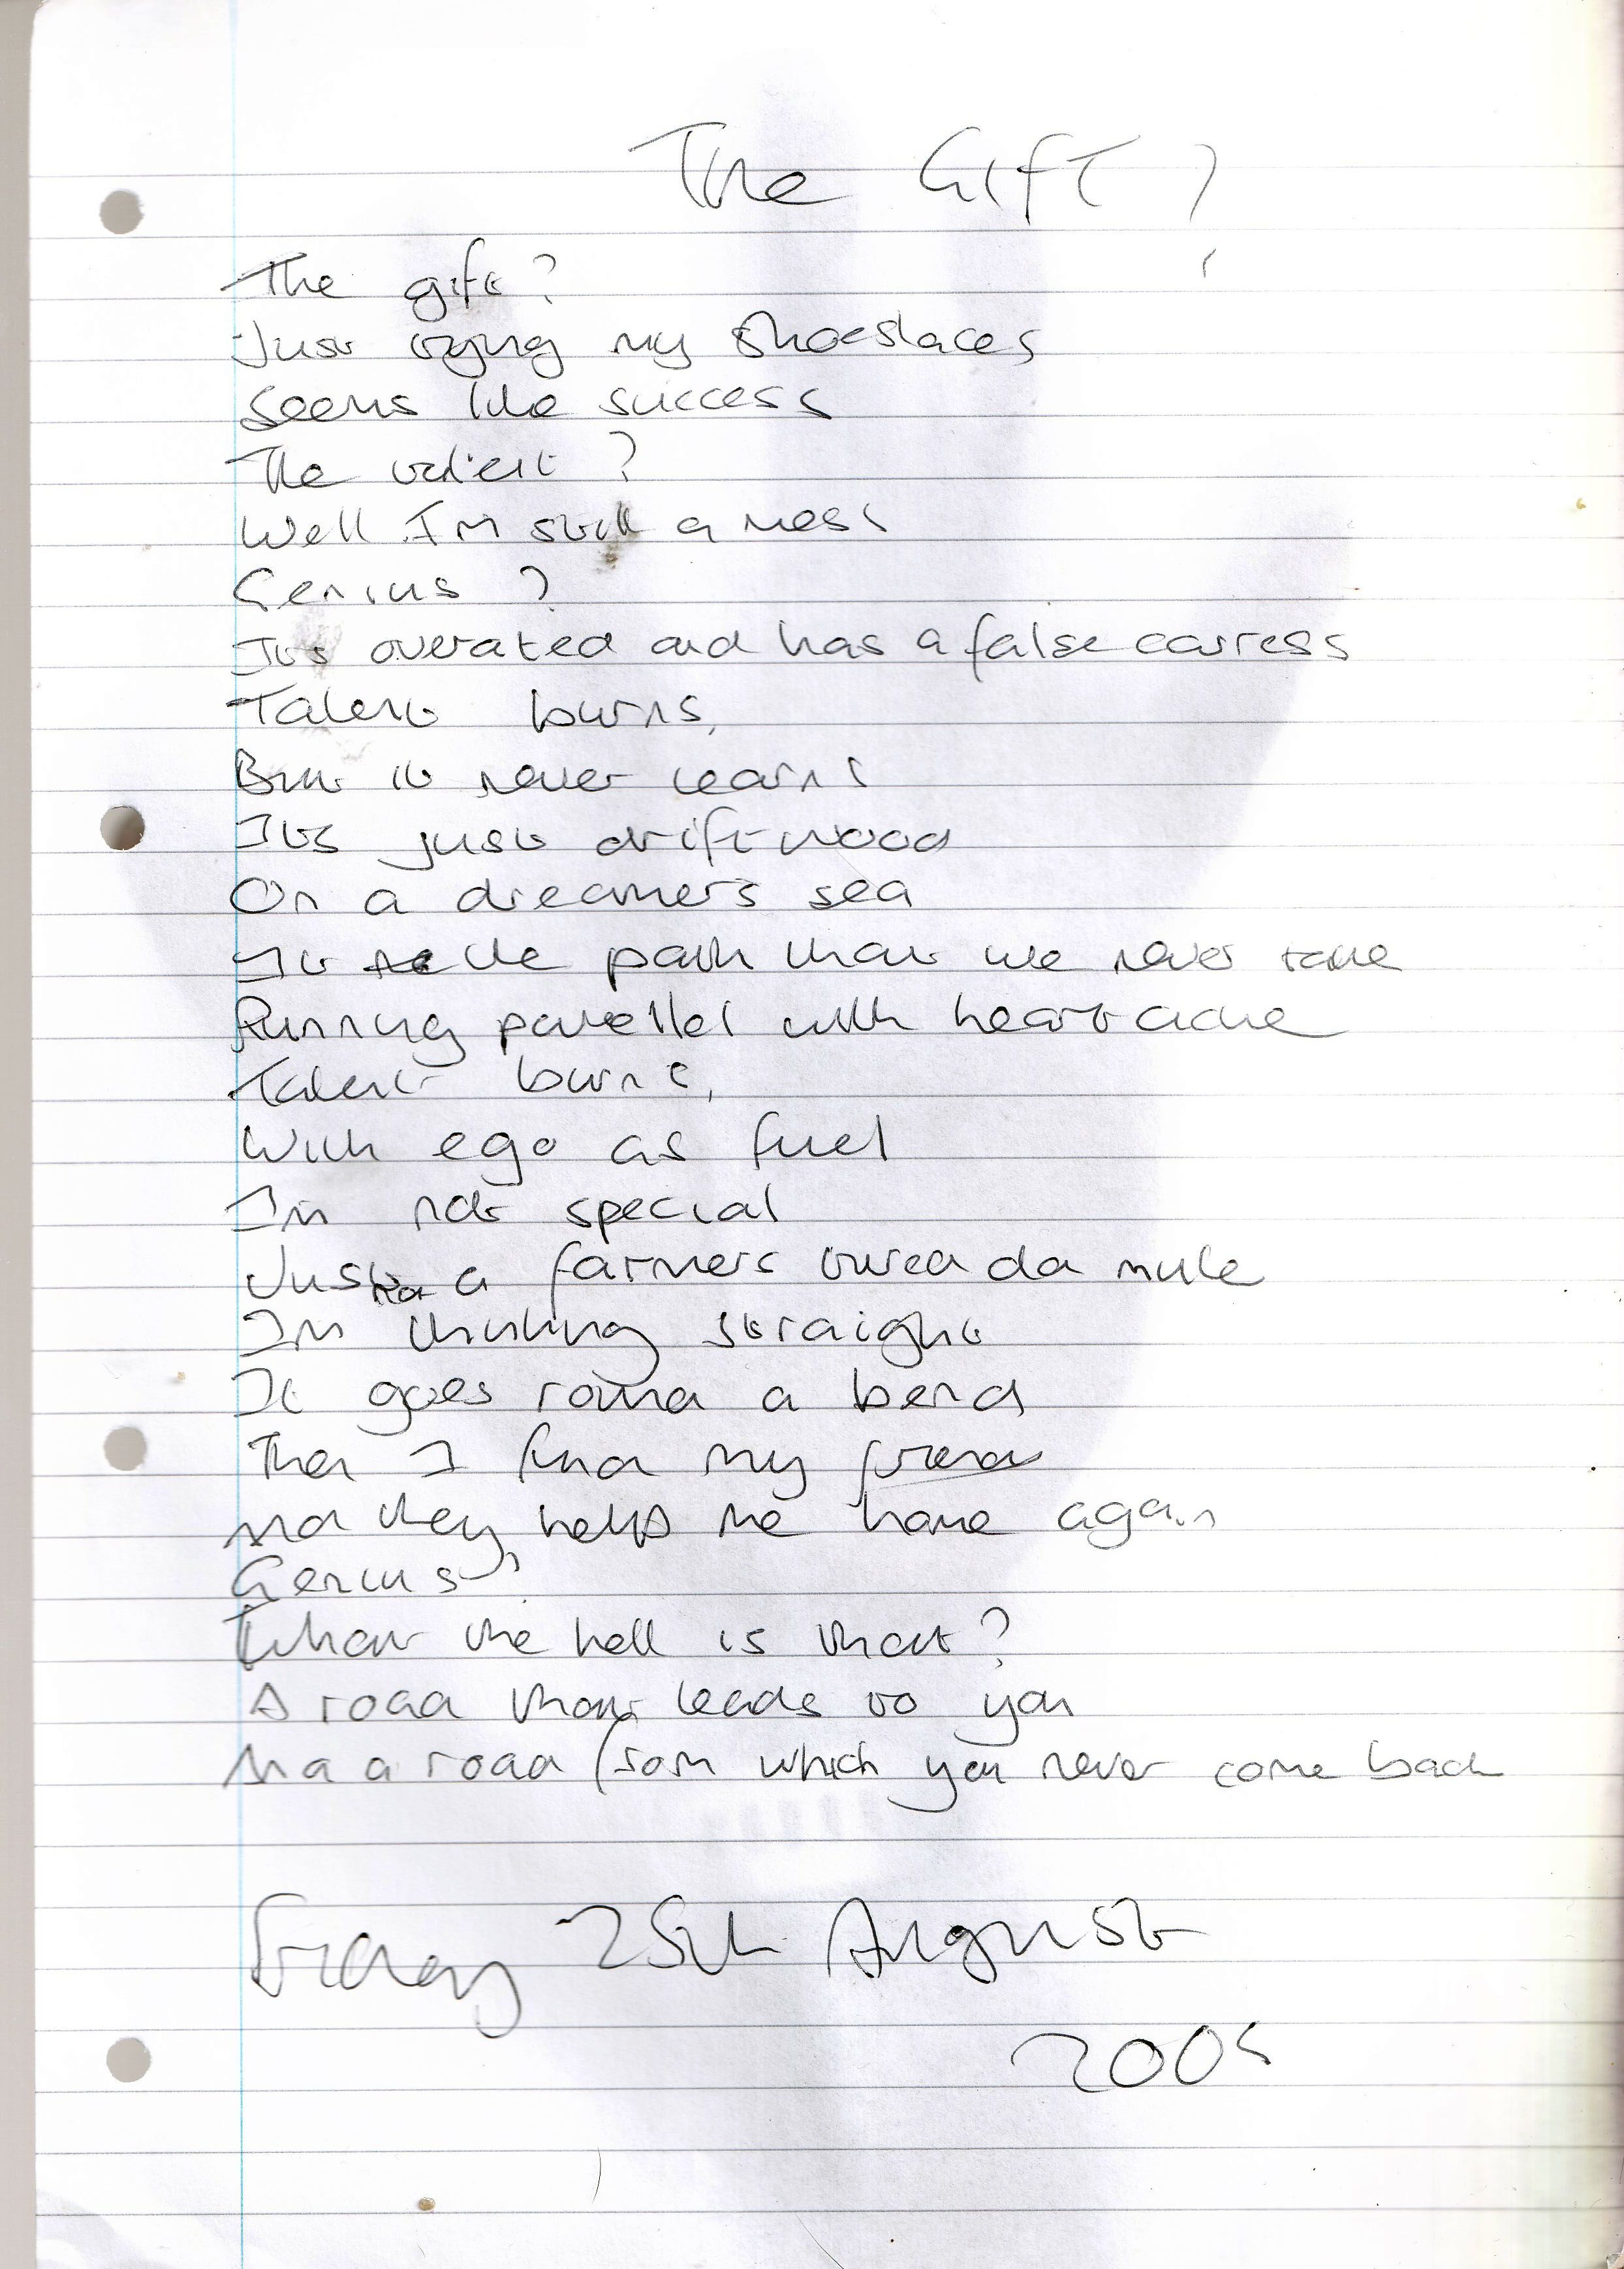 The Gift?
The gift?
Just tying my shoeslaces
Seems like success
The talent?
Well Im still a mess
Genius?
Its overated and has a false carress
Talent burns,
But it never learns
Its just driftwood
On a dreamers sea
It the path that we never take
Running parellel with heartache
Talent burns,
With ego as fuel
Im not special
Just a farmers tired old mule
Im thinking straight
It goes round a bend
Then I find my friend
And they helps me home again
Genius?
What the hell is that?
A road that leads to you
And a road from which you never come back
Friday 25th August